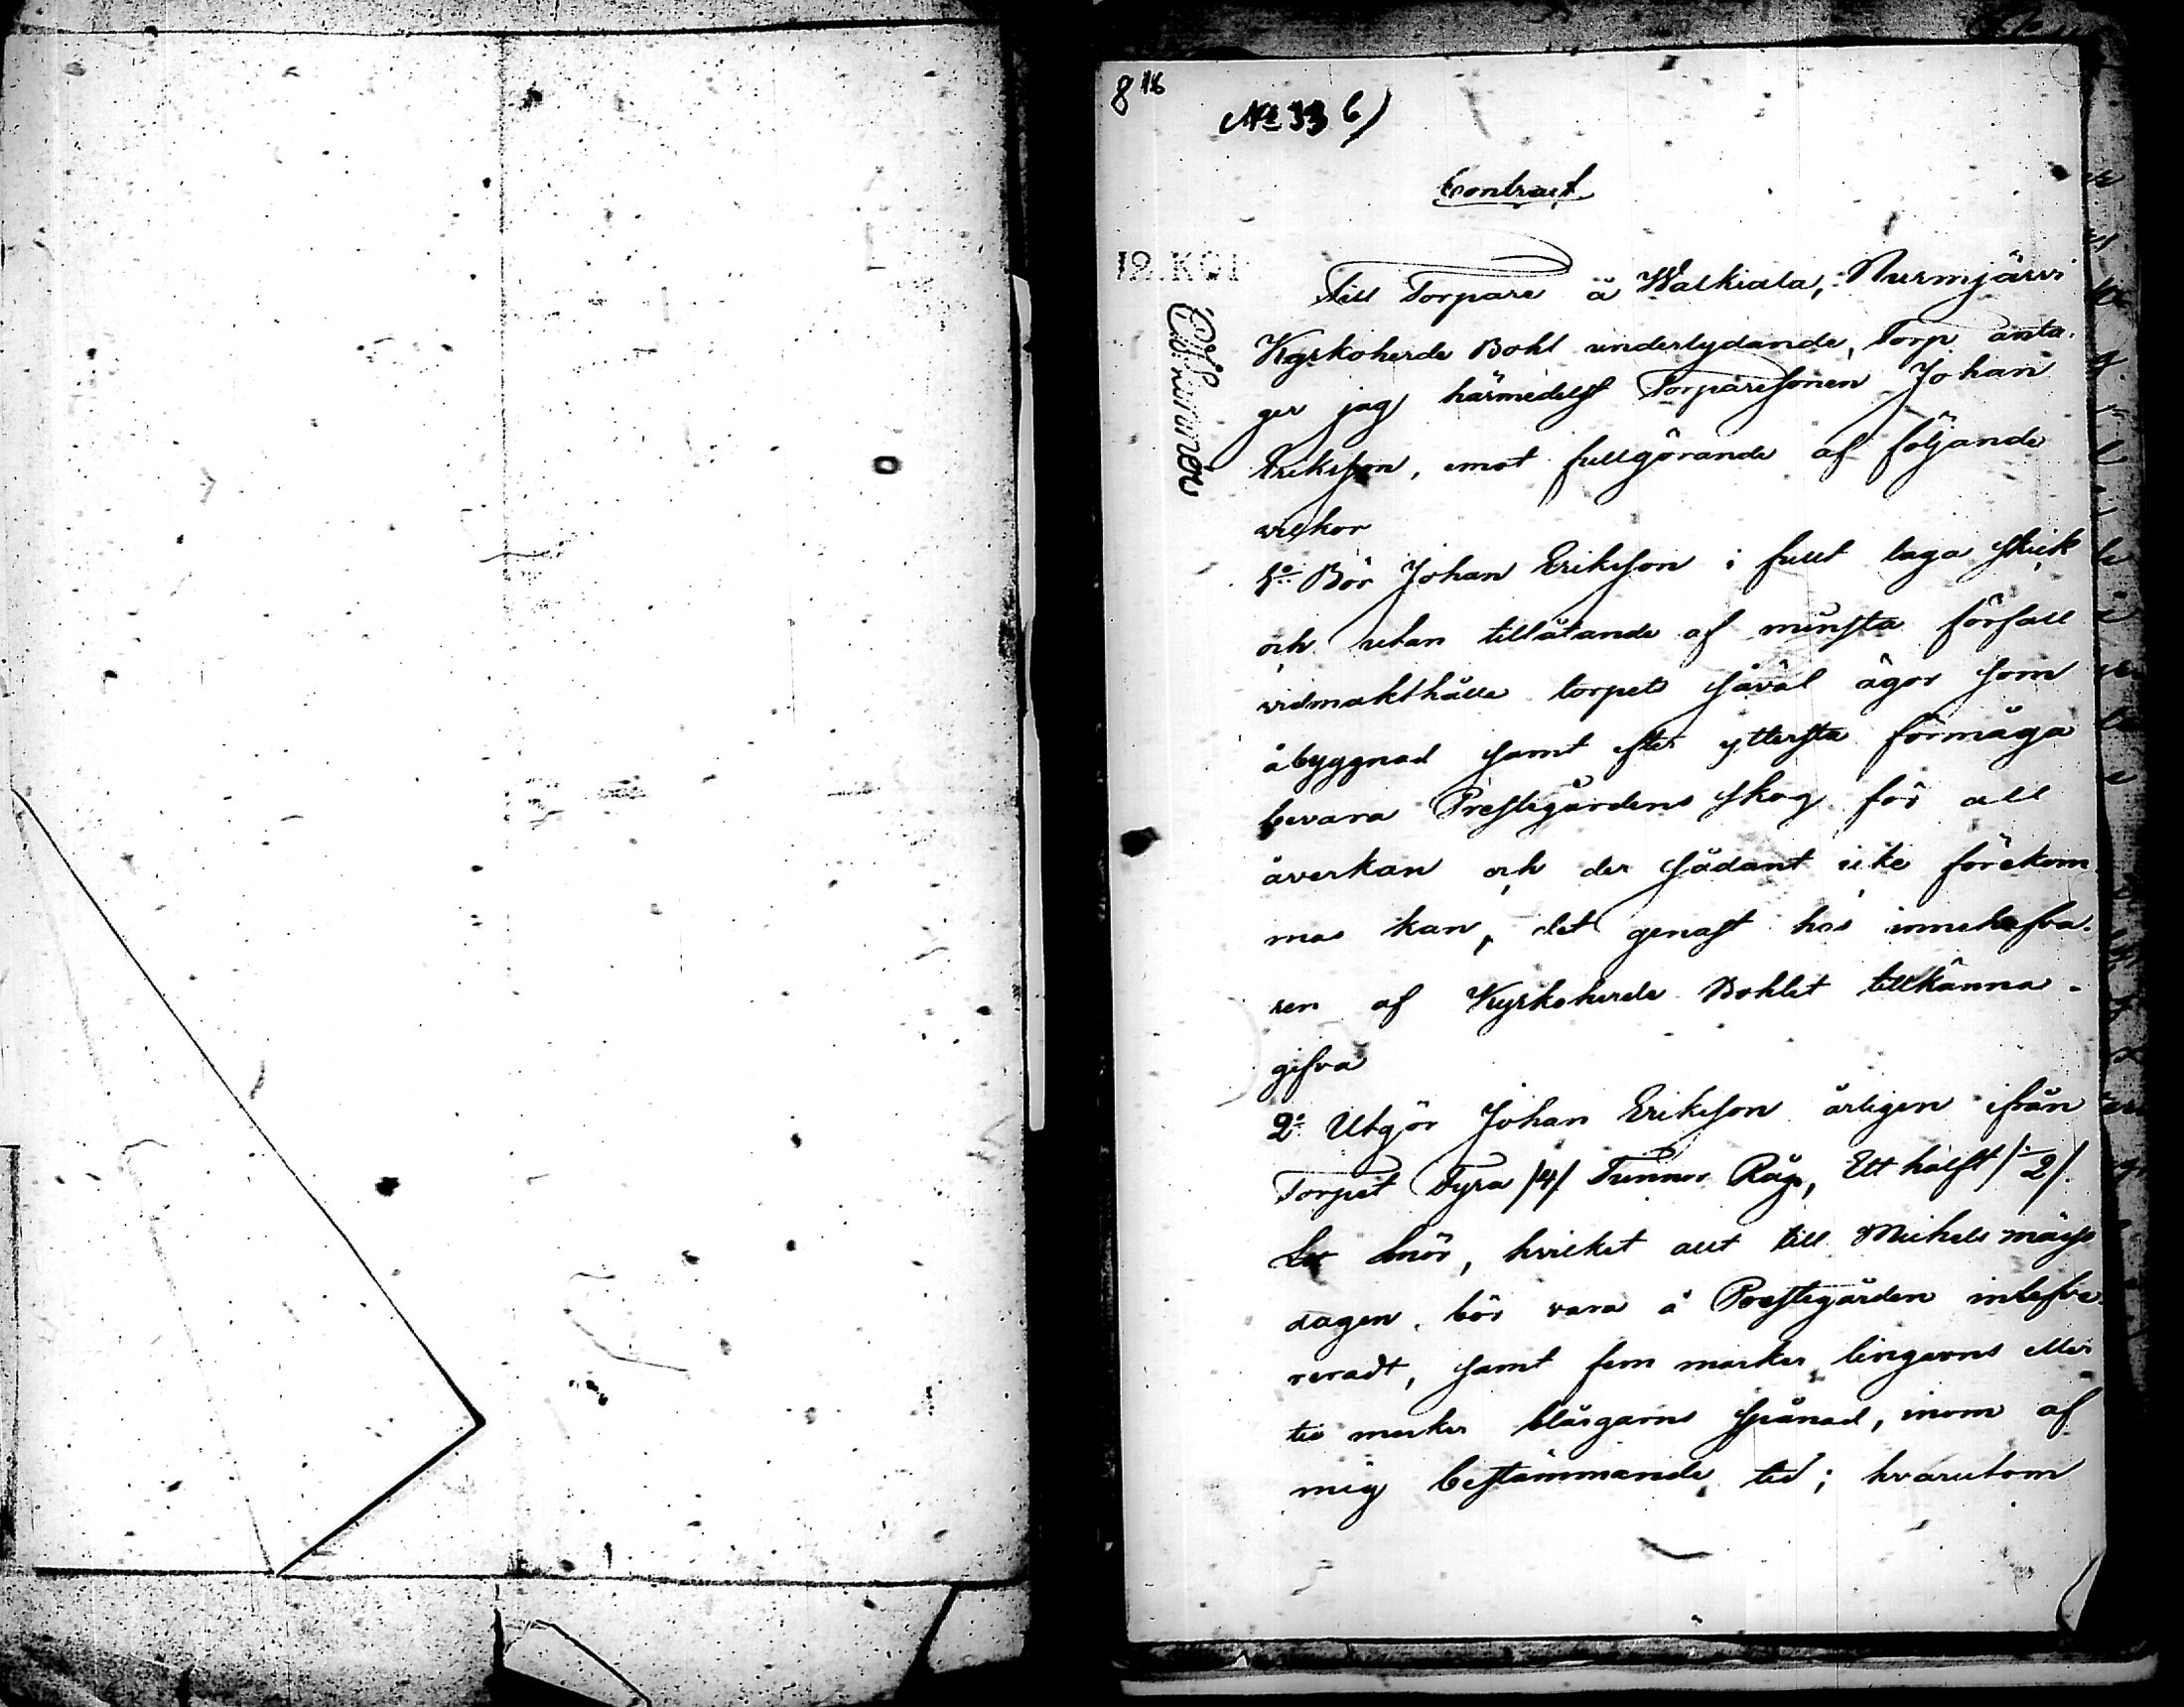 816
No 33 b)
Contract
12. KOP
Till Torpare å Walkiala, Nurmjärvi
Kyrkoherde Bohl underlydande, Torp anta-
ger jag härmedelst Torparesonen Johan
Eriksson, emot fullgörande af följande
vilkor
1o Bör Johan Eriksson i fullt laga skick
och utan tillåtande af minsta förfall
vidmakthålla torpets såväl ägor som
åbyggnad samt efter yttersta förmåga
bevara Prestegårdens skog för all
åverkan och der sådant icke förekom
mas kan, det genast hos innehafva-
ren af Kyrkoherde Bohlet tillkänna-
gifva
2o Utgör Johan Eriksson årligen ifrån
Torpet Fyra /4/ Tunnor Råg, Ett halft /1/2/
Smör, hvilket allt till Michels mässo
dagen bör vara å Prestegården inlefve-
reradt, samt fem marker lingarns eller
tio marker blårgarns spånad, inom af
mig bestämmande tid; hvarutom